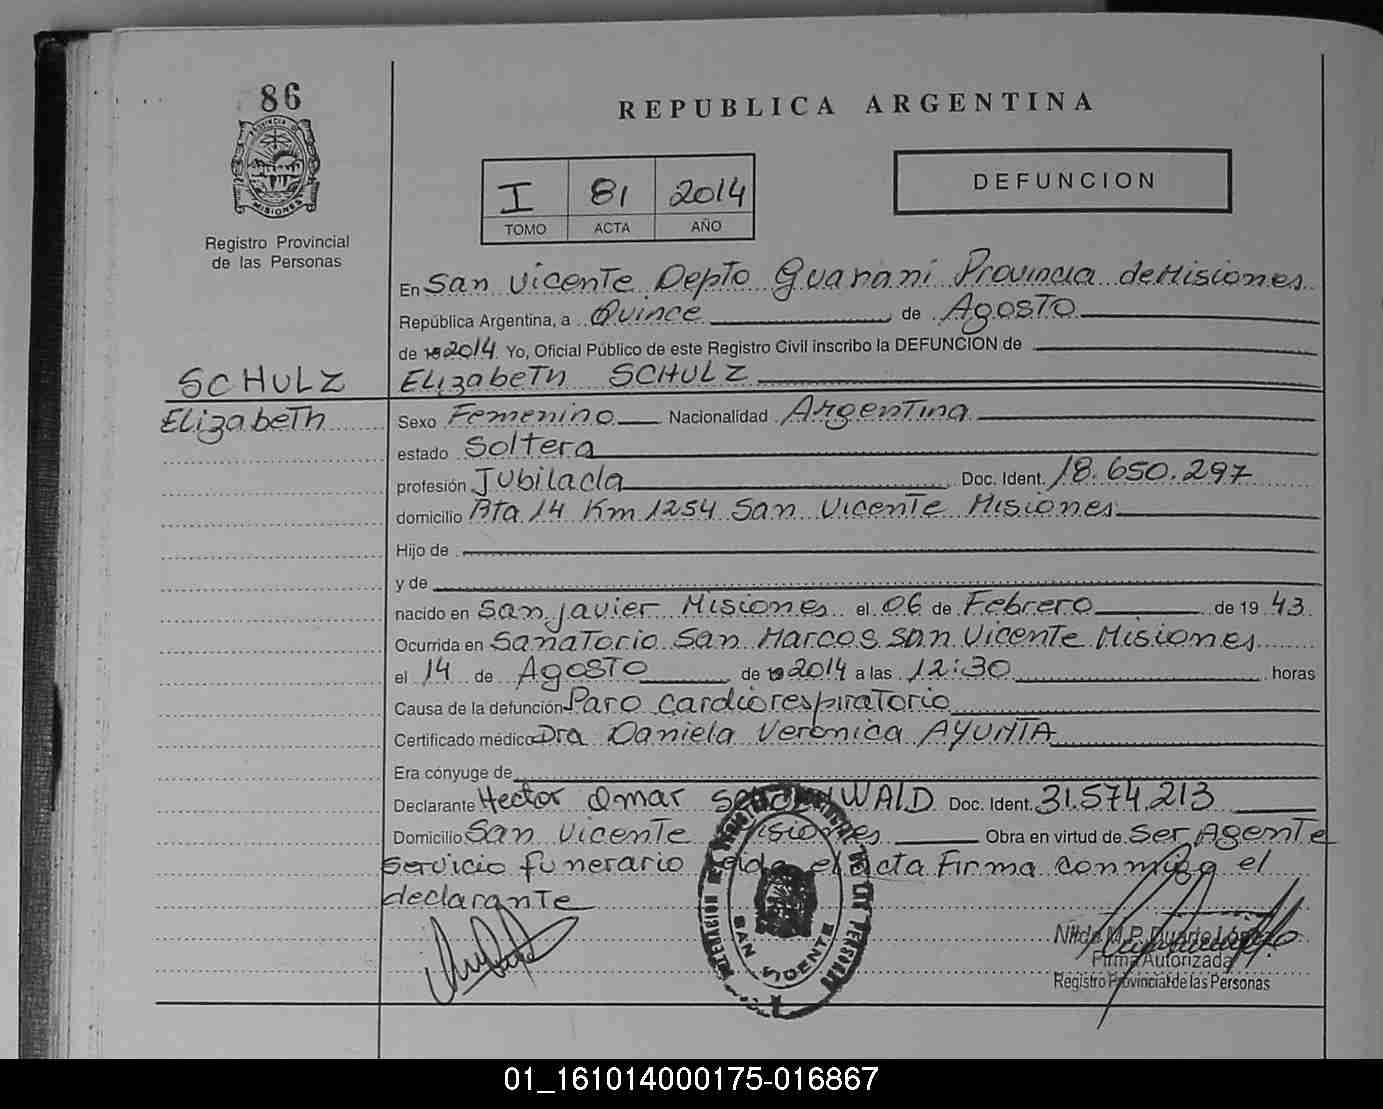 86
PROVINCIA DE
MISIONES
Registro Provincial
de las Personas
REPUBLICA ARGENTINA
I 81 2014
TOMO ACTA AÑO
DEFUNCION
En San Vicente Depto Guarani Provincia de Misiones
República Argentina, a Quince de Agosto
de 2014 Yo, Oficial Público de este Registro Civil inscribo la DEFUNCION de
SCHULZ
Elizabeth SCHULZ
Elizabeth
Sexo Femenino Nacionalidad Argentina
estado Soltera
profesión Jubilada Doc. Ident. 18.650.297
domicilio Rta 14 Km 1254 San Vicente Misiones
Hijo de
y de
nacido en San Javier Misiones el 06 de Febrero de 19 43
Ocurrida en Sanatorio San Marcos San Vicente Misiones
el 14 de Agosto de 2014 a las 12:30 horas
Causa de la defunción Paro cardiorespiratorio
Certificado médico Dra Daniela Veronica AYUNTA
Era cónyuge de
Declarante Hector Omar WALD Doc. Ident. 31.574.213
Domicilio San Vicente Misiones Obra en virtud de Ser Agente
Servicio funerario leida el acta Firma conmigo el
declarante
SAN VICENTE
Nilda M.P. Duarte López
Firma Autorizada
Registro Provincial de las Personas
01_161014000175-016867